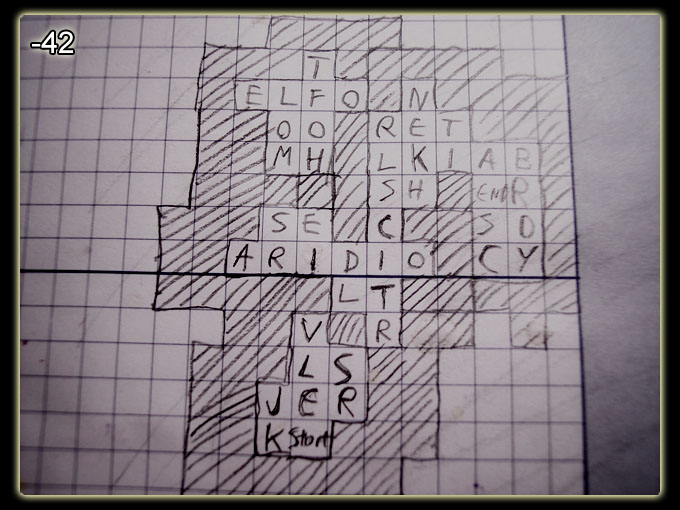 -42
T
E L F O N
O O R E T
M H L K I A B
S H END R
S E C S D
A R I D I O C Y
L T
V R
L S
V E R
K Start